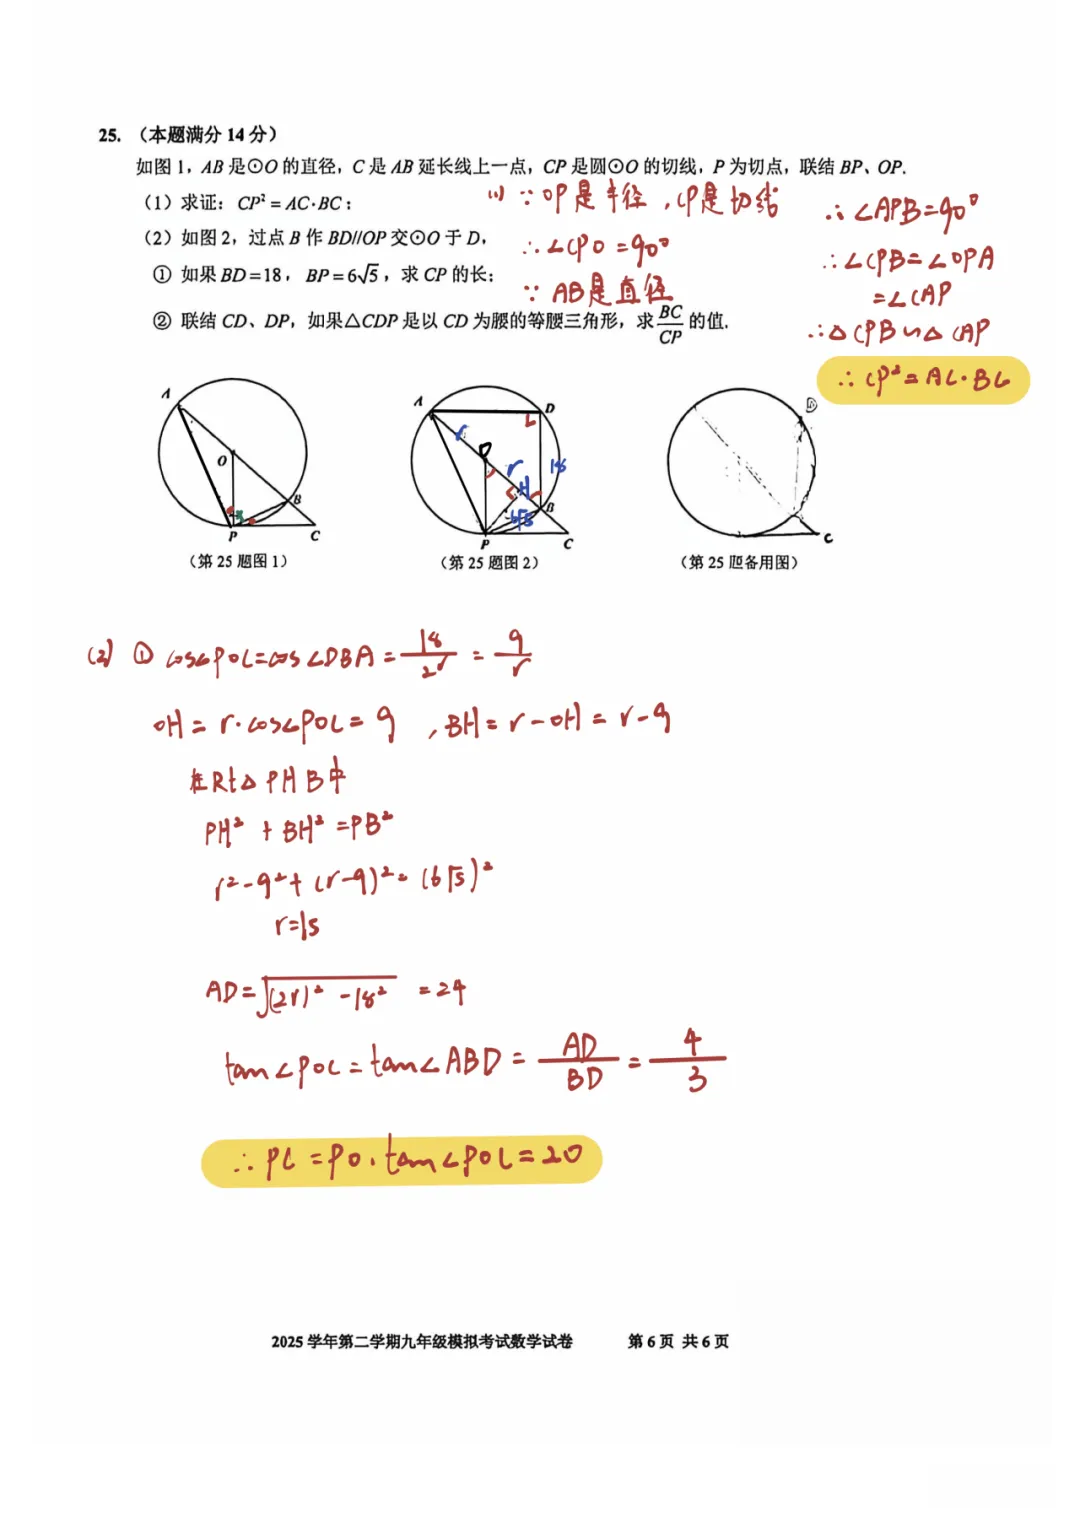 25. （本题满分 14 分）
如图 1，AB 是⊙O 的直径，C 是 AB 延长线上一点，CP 是圆⊙O 的切线，P 为切点，联结 BP、OP.
（1）求证：CP² = AC·BC；
（2）如图 2，过点 B 作 BD//OP 交⊙O 于 D，
① 如果 BD=18，BP=6√5，求 CP 的长；
② 联结 CD、DP，如果△CDP 是以 CD 为腰的等腰三角形，求 BC/CP 的值.
(1) ∵ OP是半径，CP是切线
∴ ∠CPO = 90°
∵ AB是直径
∴ ∠APB=90°
∴ ∠CPB=∠OPA
=∠CAP
∴ △CPB∽△CAP
∴ CP²=AC·BC
A
O
B
P
C
（第 25 题图 1）
A
D
O
r
r
H
18
B
6√5
P
C
（第 25 题图 2）
D
C
（第 25 题备用图）
(2) ① cos∠POC=cos∠DBA = 18/2r = 9/r
OH = r·cos∠POC = 9 , BH = r-OH = r-9
在Rt△PHB中
PH² + BH² =PB²
r²-9²+(r-9)²=(6√5)²
r=15
AD=√((2r)²-18²) =24
tan∠POC=tan∠ABD = AD/BD = 4/3
∴ PC =PO·tan∠POC=20
2025 学年第二学期九年级模拟考试数学试卷 第 6 页 共 6 页